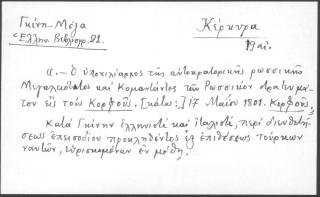 Γκίνη - Μέξα
Ἑλλην. Βιβλιογρ. 91.
Κέρκυρα
19 αἰ.
Ὁ ὑποχιλίαρχος τῆς αὐτοκρατορικῆς ρωσσικῆς
Μεγαλειότατος καὶ Κομαντάντες τῶν Ρωσσικῶν στρατευμά
των εἰς τοὺς Κορφούς. 17 Μαΐου 1801. Κορφούς,
κατὰ Γκίνην ἑλληνιστὶ καὶ ἰταλιστί, περὶ διευθετή-
σεως ἐπεισοδίου προκληθέντος ἐξ ἐπιθέσεως τούρκων
ναυτῶν, εὑρισκομένων ἐν μέθῃ.